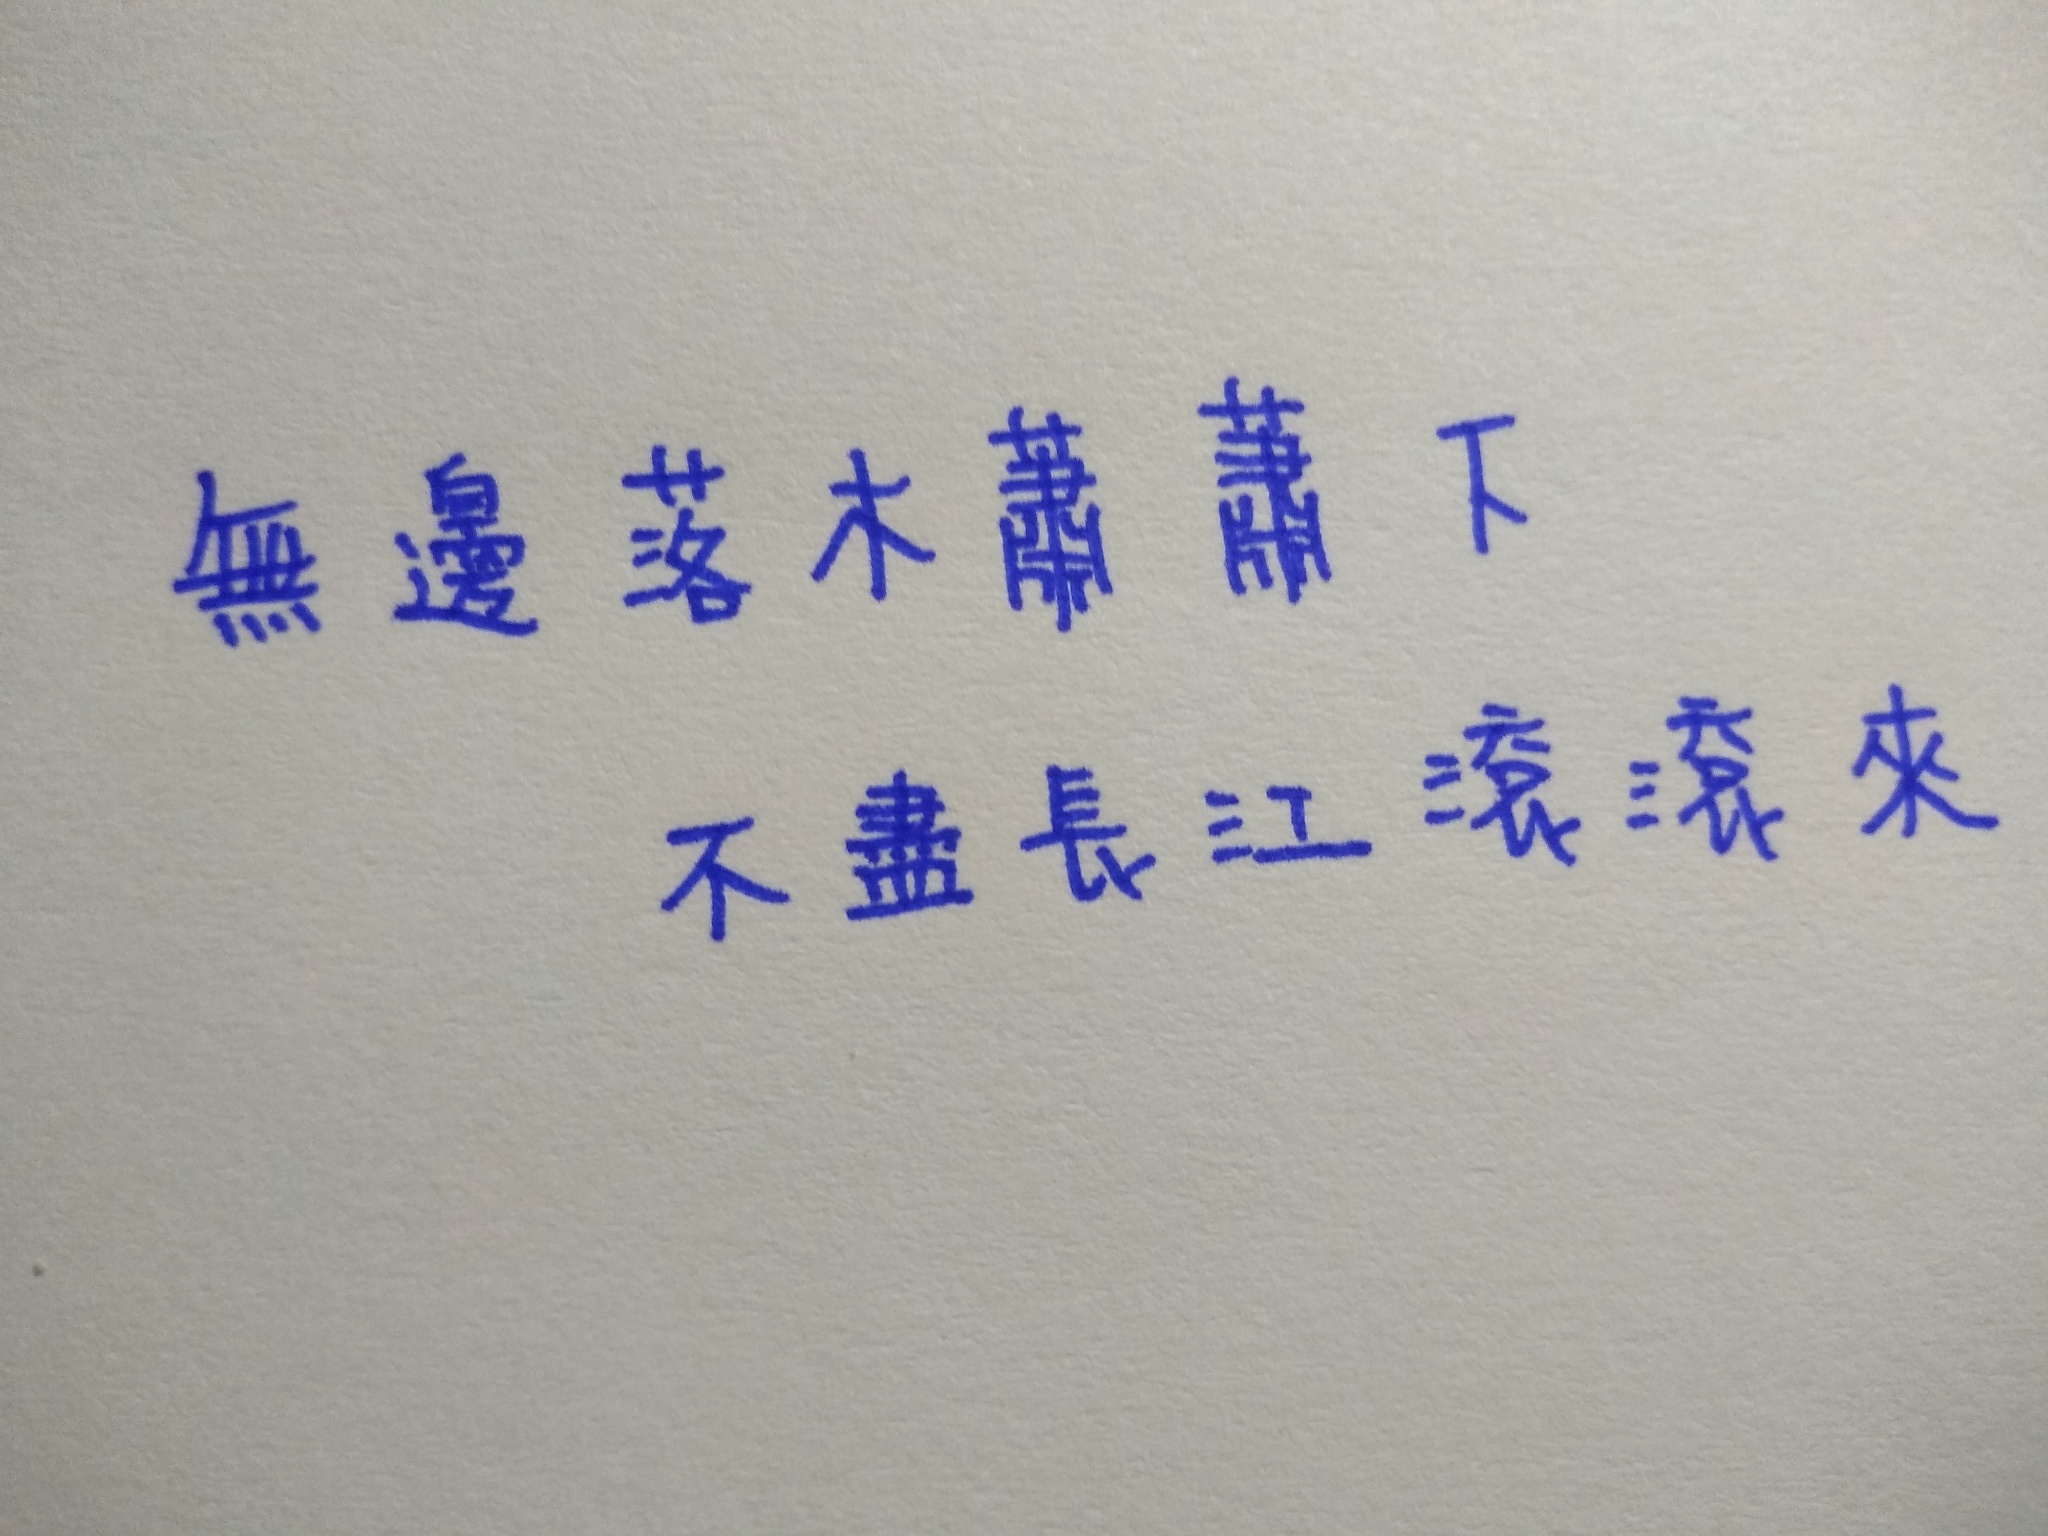 無邊落木蕭蕭下
不盡長江滾滾來